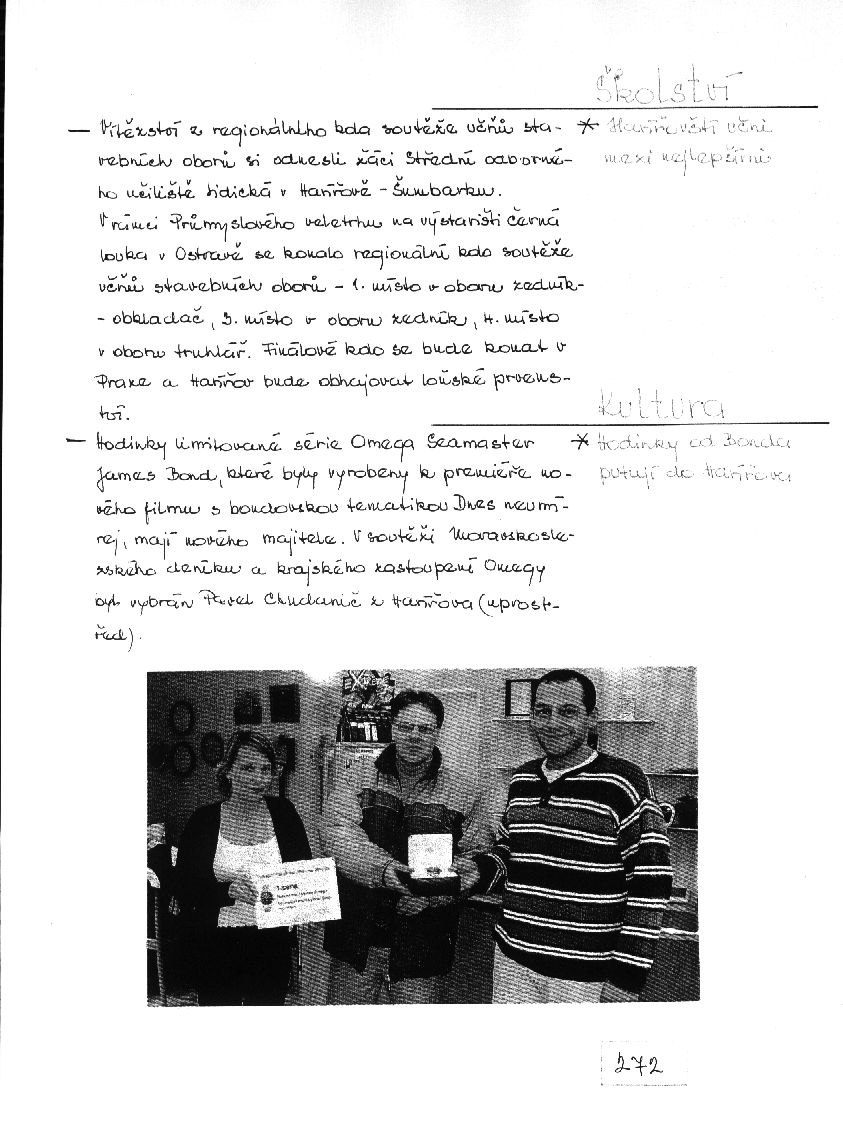 Školství
— Vítězství z regionálního kola soutěže učňů sta- * Havířovští učni
vebních oborů si odnesli žáci Střední odborné- mezi nejlepšími
ho učiliště Lidická v Havířově - Šumbarku.
V rámci Průmyslového veletrhu na výstavišti Černá
louka v Ostravě se konalo regionální kolo soutěže
učňů stavebních oborů - 1. místo v oboru zedník-
- obkladač, 3. místo v oboru zedník, 4. místo
v oboru truhlář. Finálové kolo se bude konat v
Praze a Havířov bude obhajovat loňské prvens-
tví.
Kultura
— Hodinky limitované série Omega Seamaster * Hodinky od Bonda
James Bond, které byly vyrobeny k premiéře no- putují do Havířova
vého filmu s bondovskou tematikou Dnes neumí-
rej, mají nového majitele. V soutěži Moravskosle-
zského deníku a krajského zastoupení Omegy
byl vybrán Pavel Chudanič z Havířova (uprost-
řed).
1. cena
272